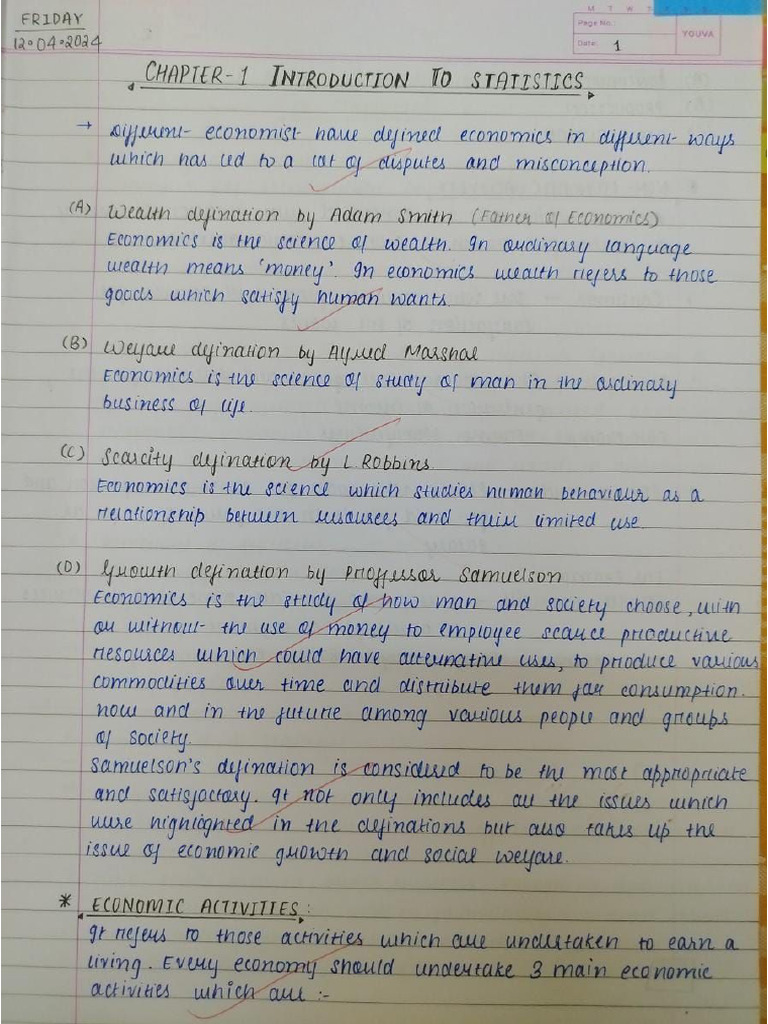 FRIDAY
12.04.2024
M T W T F S S
Page No.:
Date: 1
YOUVA
CHAPTER-1 INTRODUCTION TO STATISTICS
→ Different economist have defined economics in different ways
which has led to a lot of disputes and misconception.
(A) Wealth defination by Adam Smith (Father of Economics)
Economics is the science of wealth. In ordinary language
wealth means 'money'. In economics wealth refers to those
goods which satisfy human wants.
(B) Welfare defination by Alfred Marshal
Economics is the science of study of man in the ordinary
business of life.
(C) Scarcity defination by L Robbins
Economics is the science which studies human behaviour as a
relationship between resources and their limited use
(D) Growth defination by Proffessor Samuelson
Economics is the study of how man and society choose, with
or without the use of money to employee scarce productive
resources which could have alternative uses, to produce various
commodities over time and distribute them for consumption.
now and in the future among various people and groups
of society.
Samuelson's defination is considered to be the most appropriate
and satisfactory. It not only includes all the issues which
were highlighted in the definations but also takes up the
issue of economic growth and social welfare.
* ECONOMIC ACTIVITIES:
It refers to those activities which are undertaken to earn a
living. Every economy should undertake 3 main economic
activities which are :-